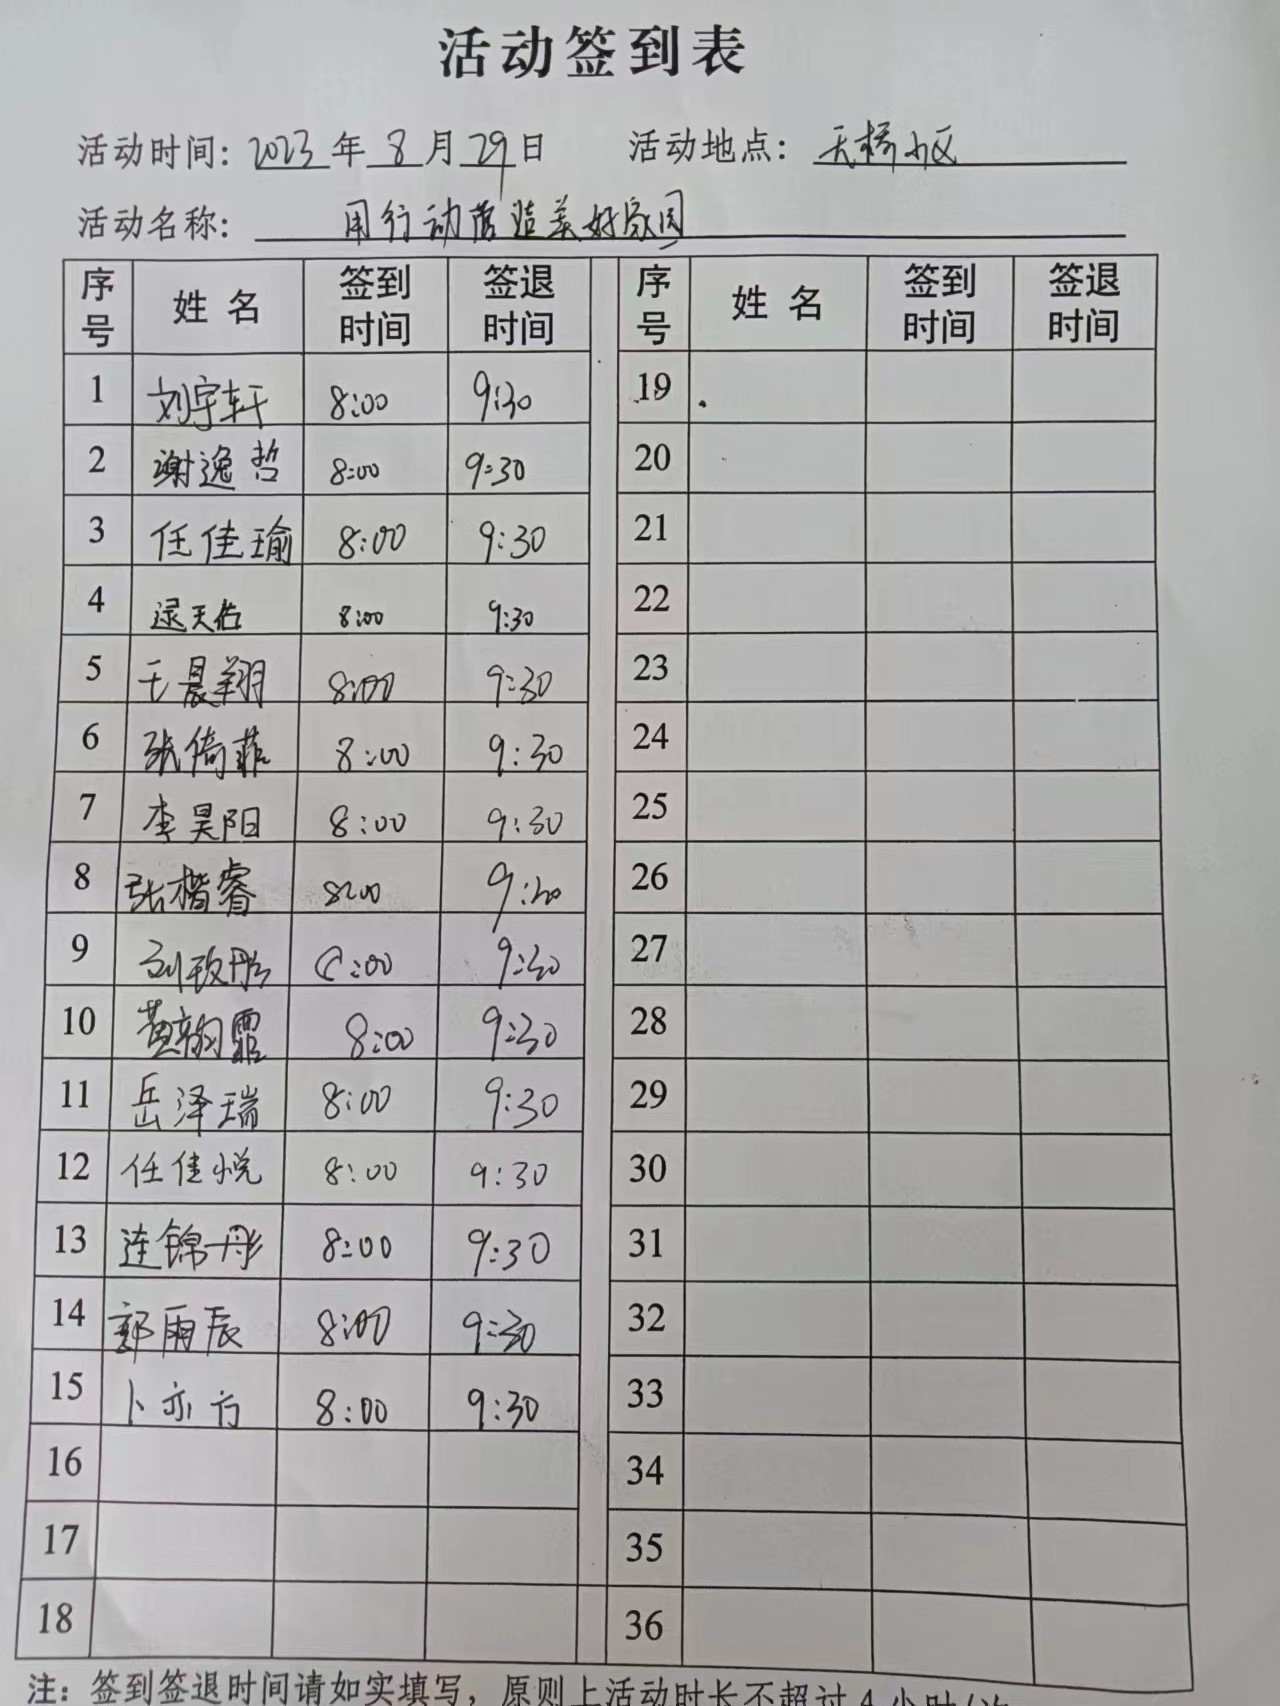 活动签到表
活动时间：2023年8月29日 活动地点：天桥小区
活动名称：用行动营造美好家园
序号 姓名 签到时间 签退时间 序号 姓名 签到时间 签退时间
1 刘宇轩 8:00 9:30 19
2 谢逸哲 8:00 9:30 20
3 任佳瑜 8:00 9:30 21
4 逯天佑 8:00 9:30 22
5 王晨翔 8:00 9:30 23
6 张倚菲 8:00 9:30 24
7 李昊阳 8:00 9:30 25
8 张楷睿 8:00 9:30 26
9 刘政彤 8:00 9:30 27
10 黄韵霏 8:00 9:30 28
11 岳泽瑞 8:00 9:30 29
12 任佳悦 8:00 9:30 30
13 连锦彤 8:00 9:30 31
14 郭雨辰 8:00 9:30 32
15 卜亦方 8:00 9:30 33
16 34
17 35
18 36
注：签到签退时间请如实填写，原则上活动时长不超过4小时/次